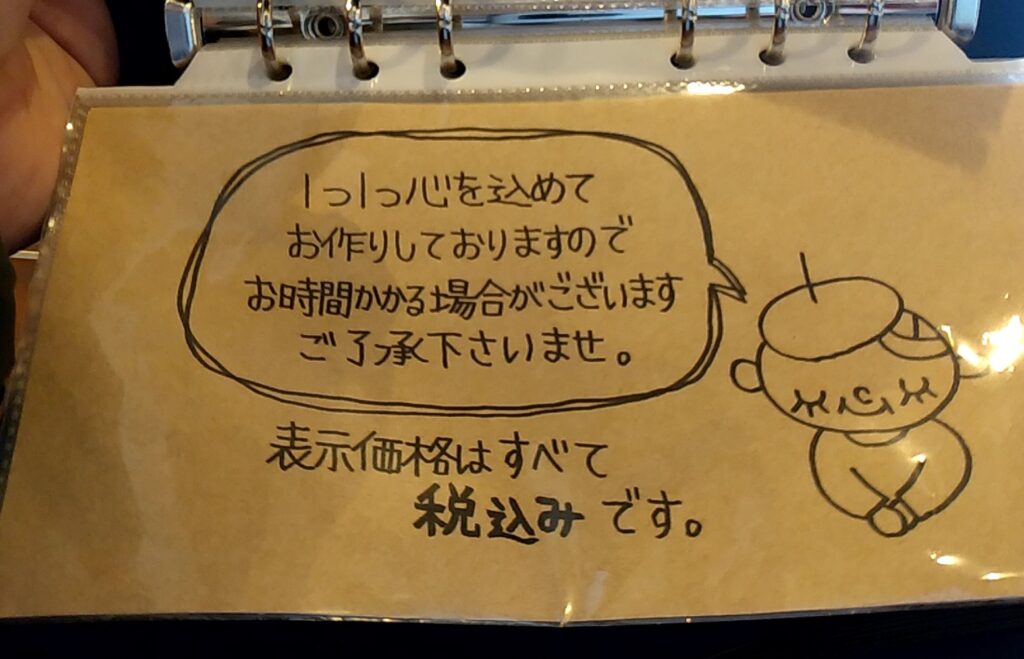 1つ1つ心を込めて
お作りしておりますので
お時間かかる場合がございます
ご了承下さいませ。
表示価格はすべて
税込みです。